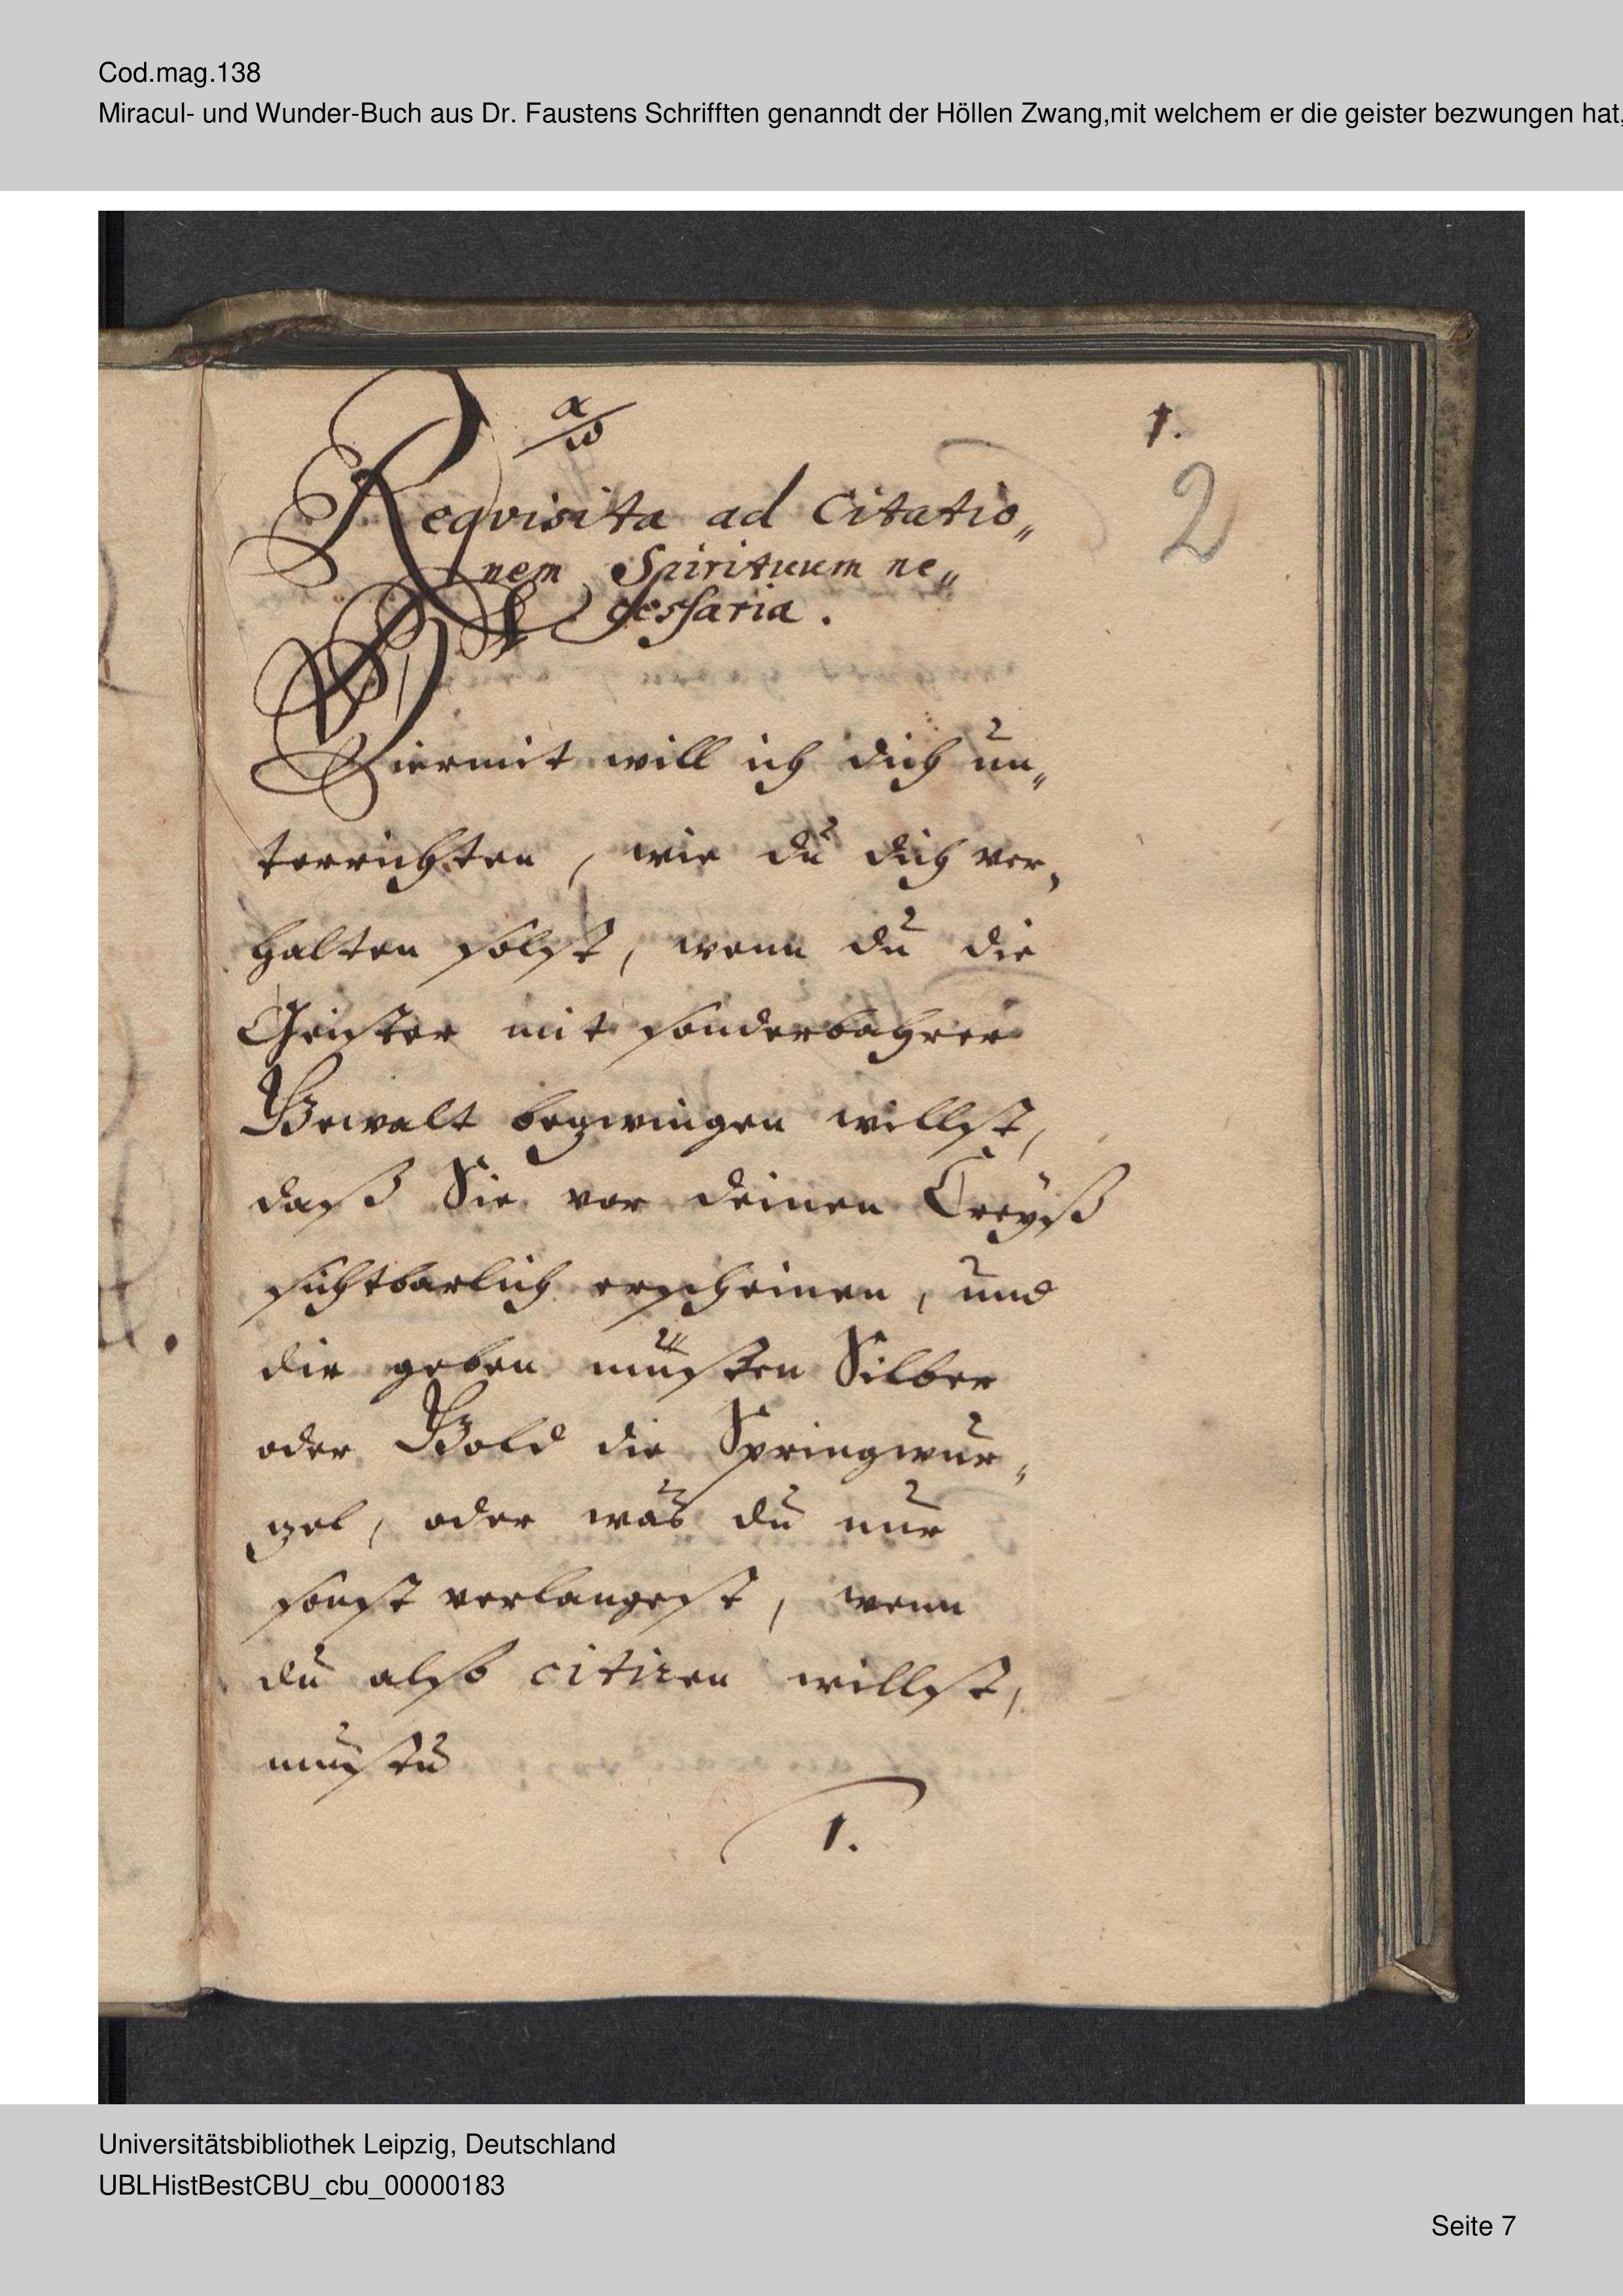 Cod.mag.138
Miracul- und Wunder-Buch aus Dr. Faustens Schrifften genanndt der Höllen Zwang,mit welchem er die geister bezwungen hat,
α/ω
1.
2
Reqvisita ad Citatio„
nem Spirituum ne„
cessaria.
Hiermit will ich dich un„
terrichten, wie du dich ver„
halten solst, wenn du die
Geister mit sonderbahrer
Gewalt bezwingen willst,
daß Sie vor deinen Creyß
sichtbarlich erscheinen, und
dir geben müsten Silber
oder Gold die Springwur„
zel, oder was du nur
sonst verlangest, wenn
du also citiren willst,
mustu
1.
Universitätsbibliothek Leipzig, Deutschland
UBLHistBestCBU_cbu_00000183
Seite 7